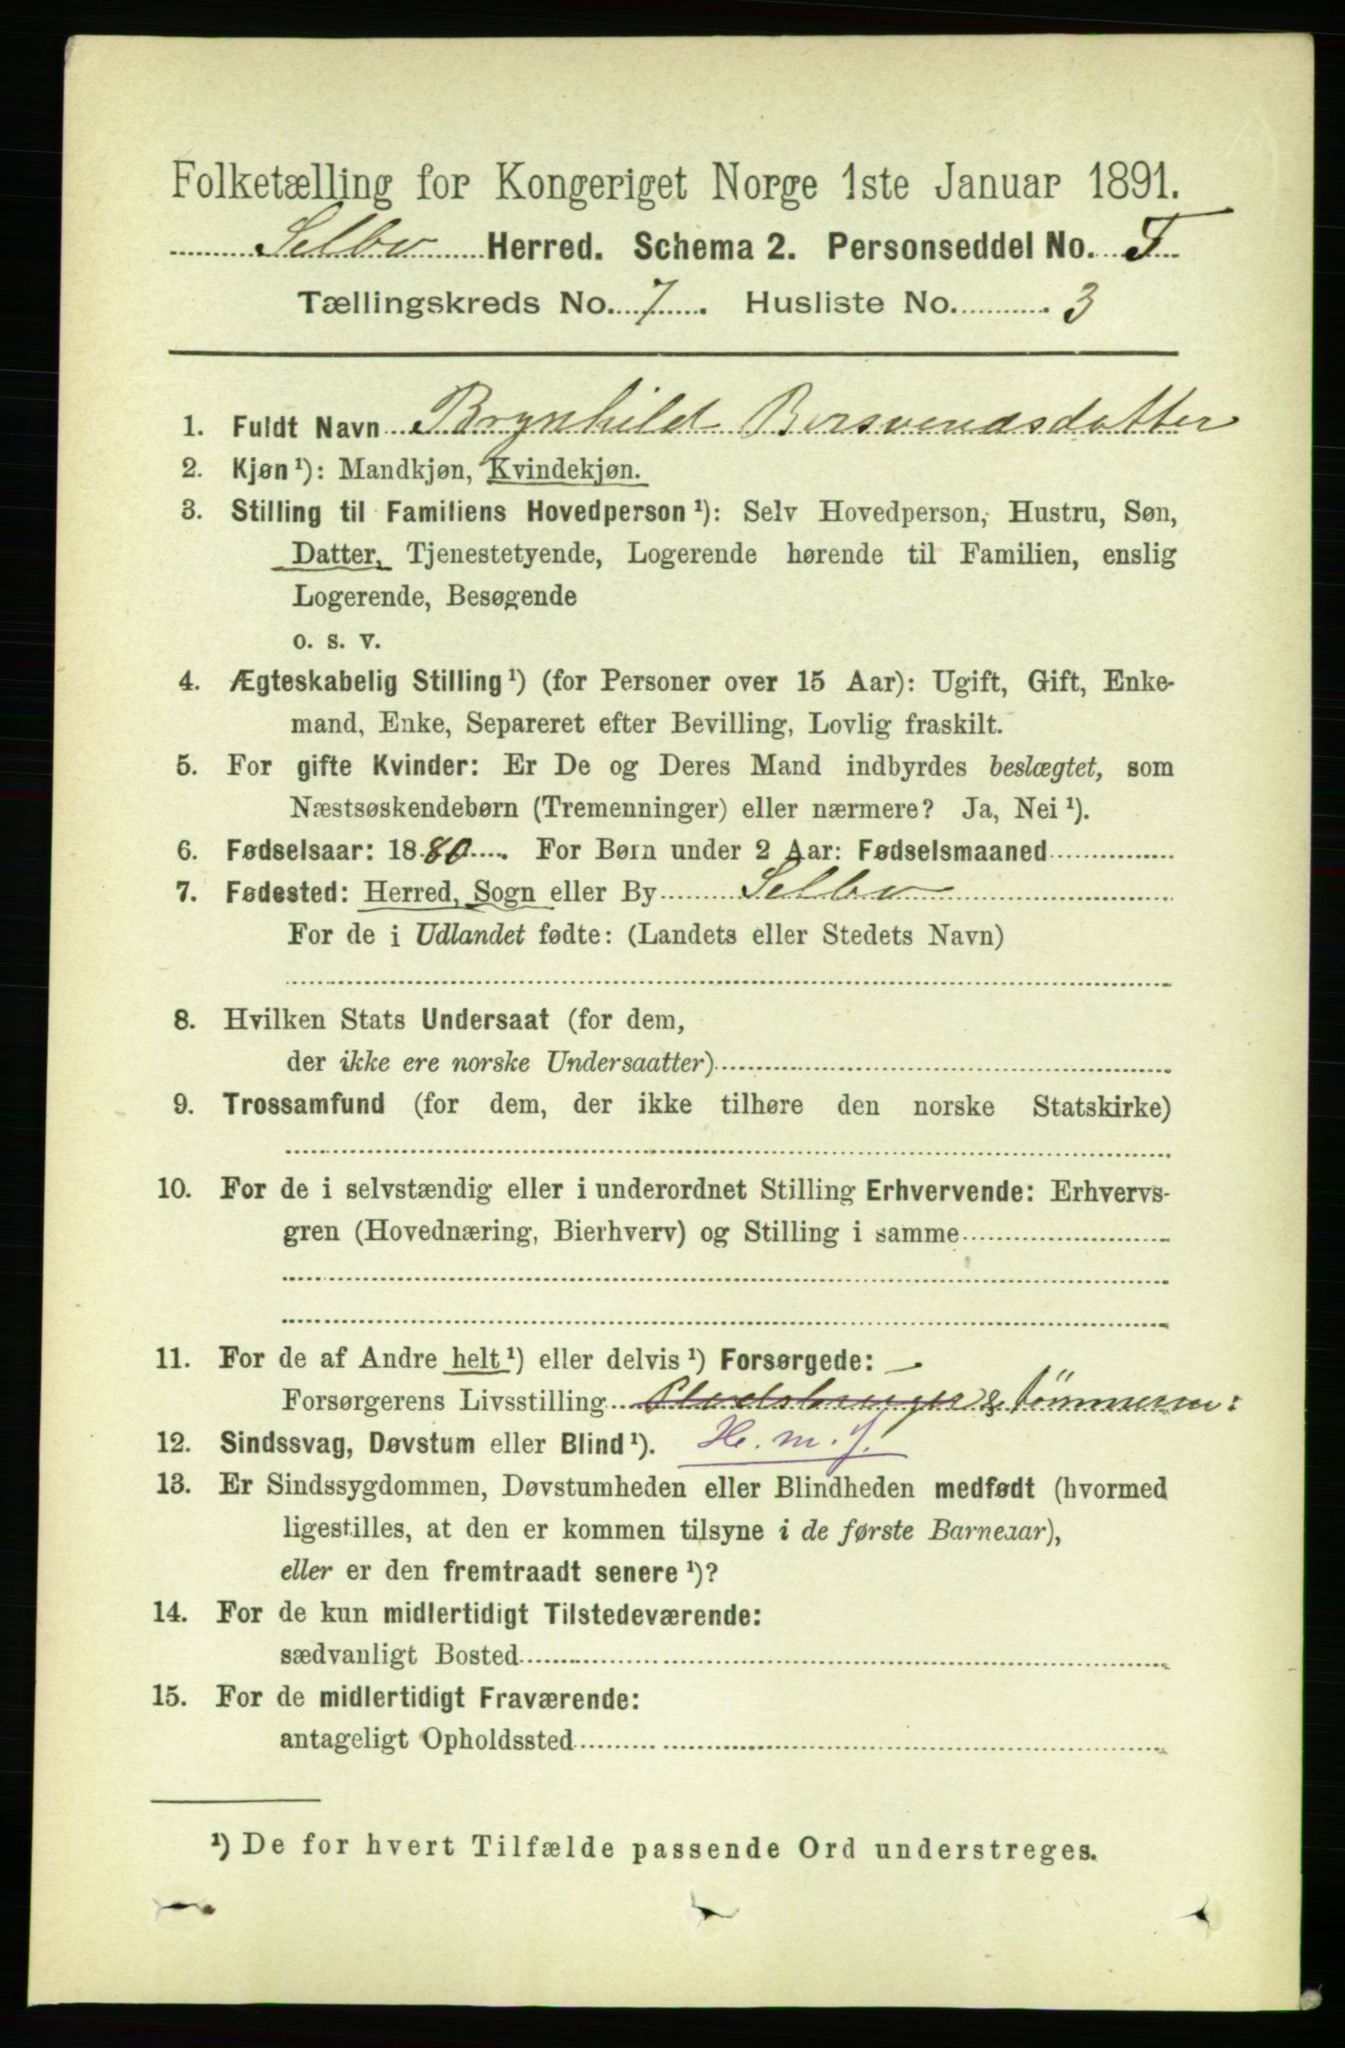 Folketælling for Kongeriget Norge 1ste Januar 1891.
Selbu Herred. Schema 2. Personseddel No. F
Tællingskreds No. 7. Husliste No. 3
1. Fuldt Navn Brynhild Bersvendsdatter
2. Kjøn¹): Mandkjøn, Kvindekjøn.
3. Stilling til Familiens Hovedperson¹): Selv Hovedperson, Hustru, Søn,
Datter, Tjenestetyende, Logerende hørende til Familien, enslig
Logerende, Besøgende
o. s. v.
4. Ægteskabelig Stilling¹) (for Personer over 15 Aar): Ugift, Gift, Enke-
mand, Enke, Separeret efter Bevilling, Lovlig fraskilt.
5. For gifte Kvinder: Er De og Deres Mand indbyrdes beslægtet, som
Næstsøskendebørn (Tremenninger) eller nærmere? Ja, Nei¹).
6. Fødselsaar: 1880. For Børn under 2 Aar: Fødselsmaaned
7. Fødested: Herred, Sogn eller By Selbu
For de i Udlandet fødte: (Landets eller Stedets Navn)
8. Hvilken Stats Undersaat (for dem,
der ikke ere norske Undersaatter)
9. Trossamfund (for dem, der ikke tilhøre den norske Statskirke)
10. For de i selvstændig eller i underordnet Stilling Erhvervende: Erhvervs-
gren (Hovednæring, Bierhverv) og Stilling i samme
11. For de af Andre helt¹) eller delvis¹) Forsørgede:
Forsørgerens Livsstilling Pladsbruger & tømmerm:
12. Sindssvag, Døvstum eller Blind¹). H. m. J.
13. Er Sindssygdommen, Døvstumheden eller Blindheden medfødt (hvormed
ligestilles, at den er kommen tilsyne i de første Barneaar),
eller er den fremtraadt senere¹)?
14. For de kun midlertidigt Tilstedeværende:
sædvanligt Bosted
15. For de midlertidigt Fraværende:
antageligt Opholdssted
¹) De for hvert Tilfælde passende Ord understreges.